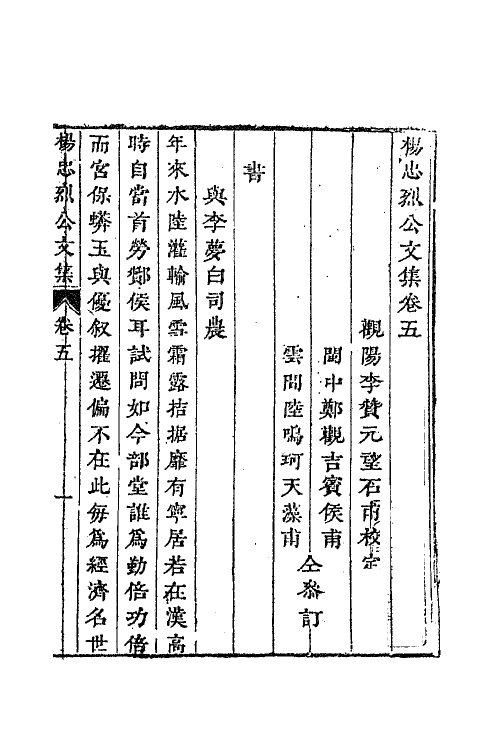 楊忠烈公文集卷五
觀陽李贊元望石甫校定
閩中鄭觀吉賓侯甫
雲間陸鳴珂天藻甫
仝叅訂
書
與李夢白司農
年來水陸灌輸風雲霜露拮据靡有寧居若在漢高
時自當首勞酇侯耳試問如今部堂誰爲勤倍功倍
而宮保蟒玉與優叙擢遷偏不在此每爲經濟名世
楊忠烈公文集 卷五 一